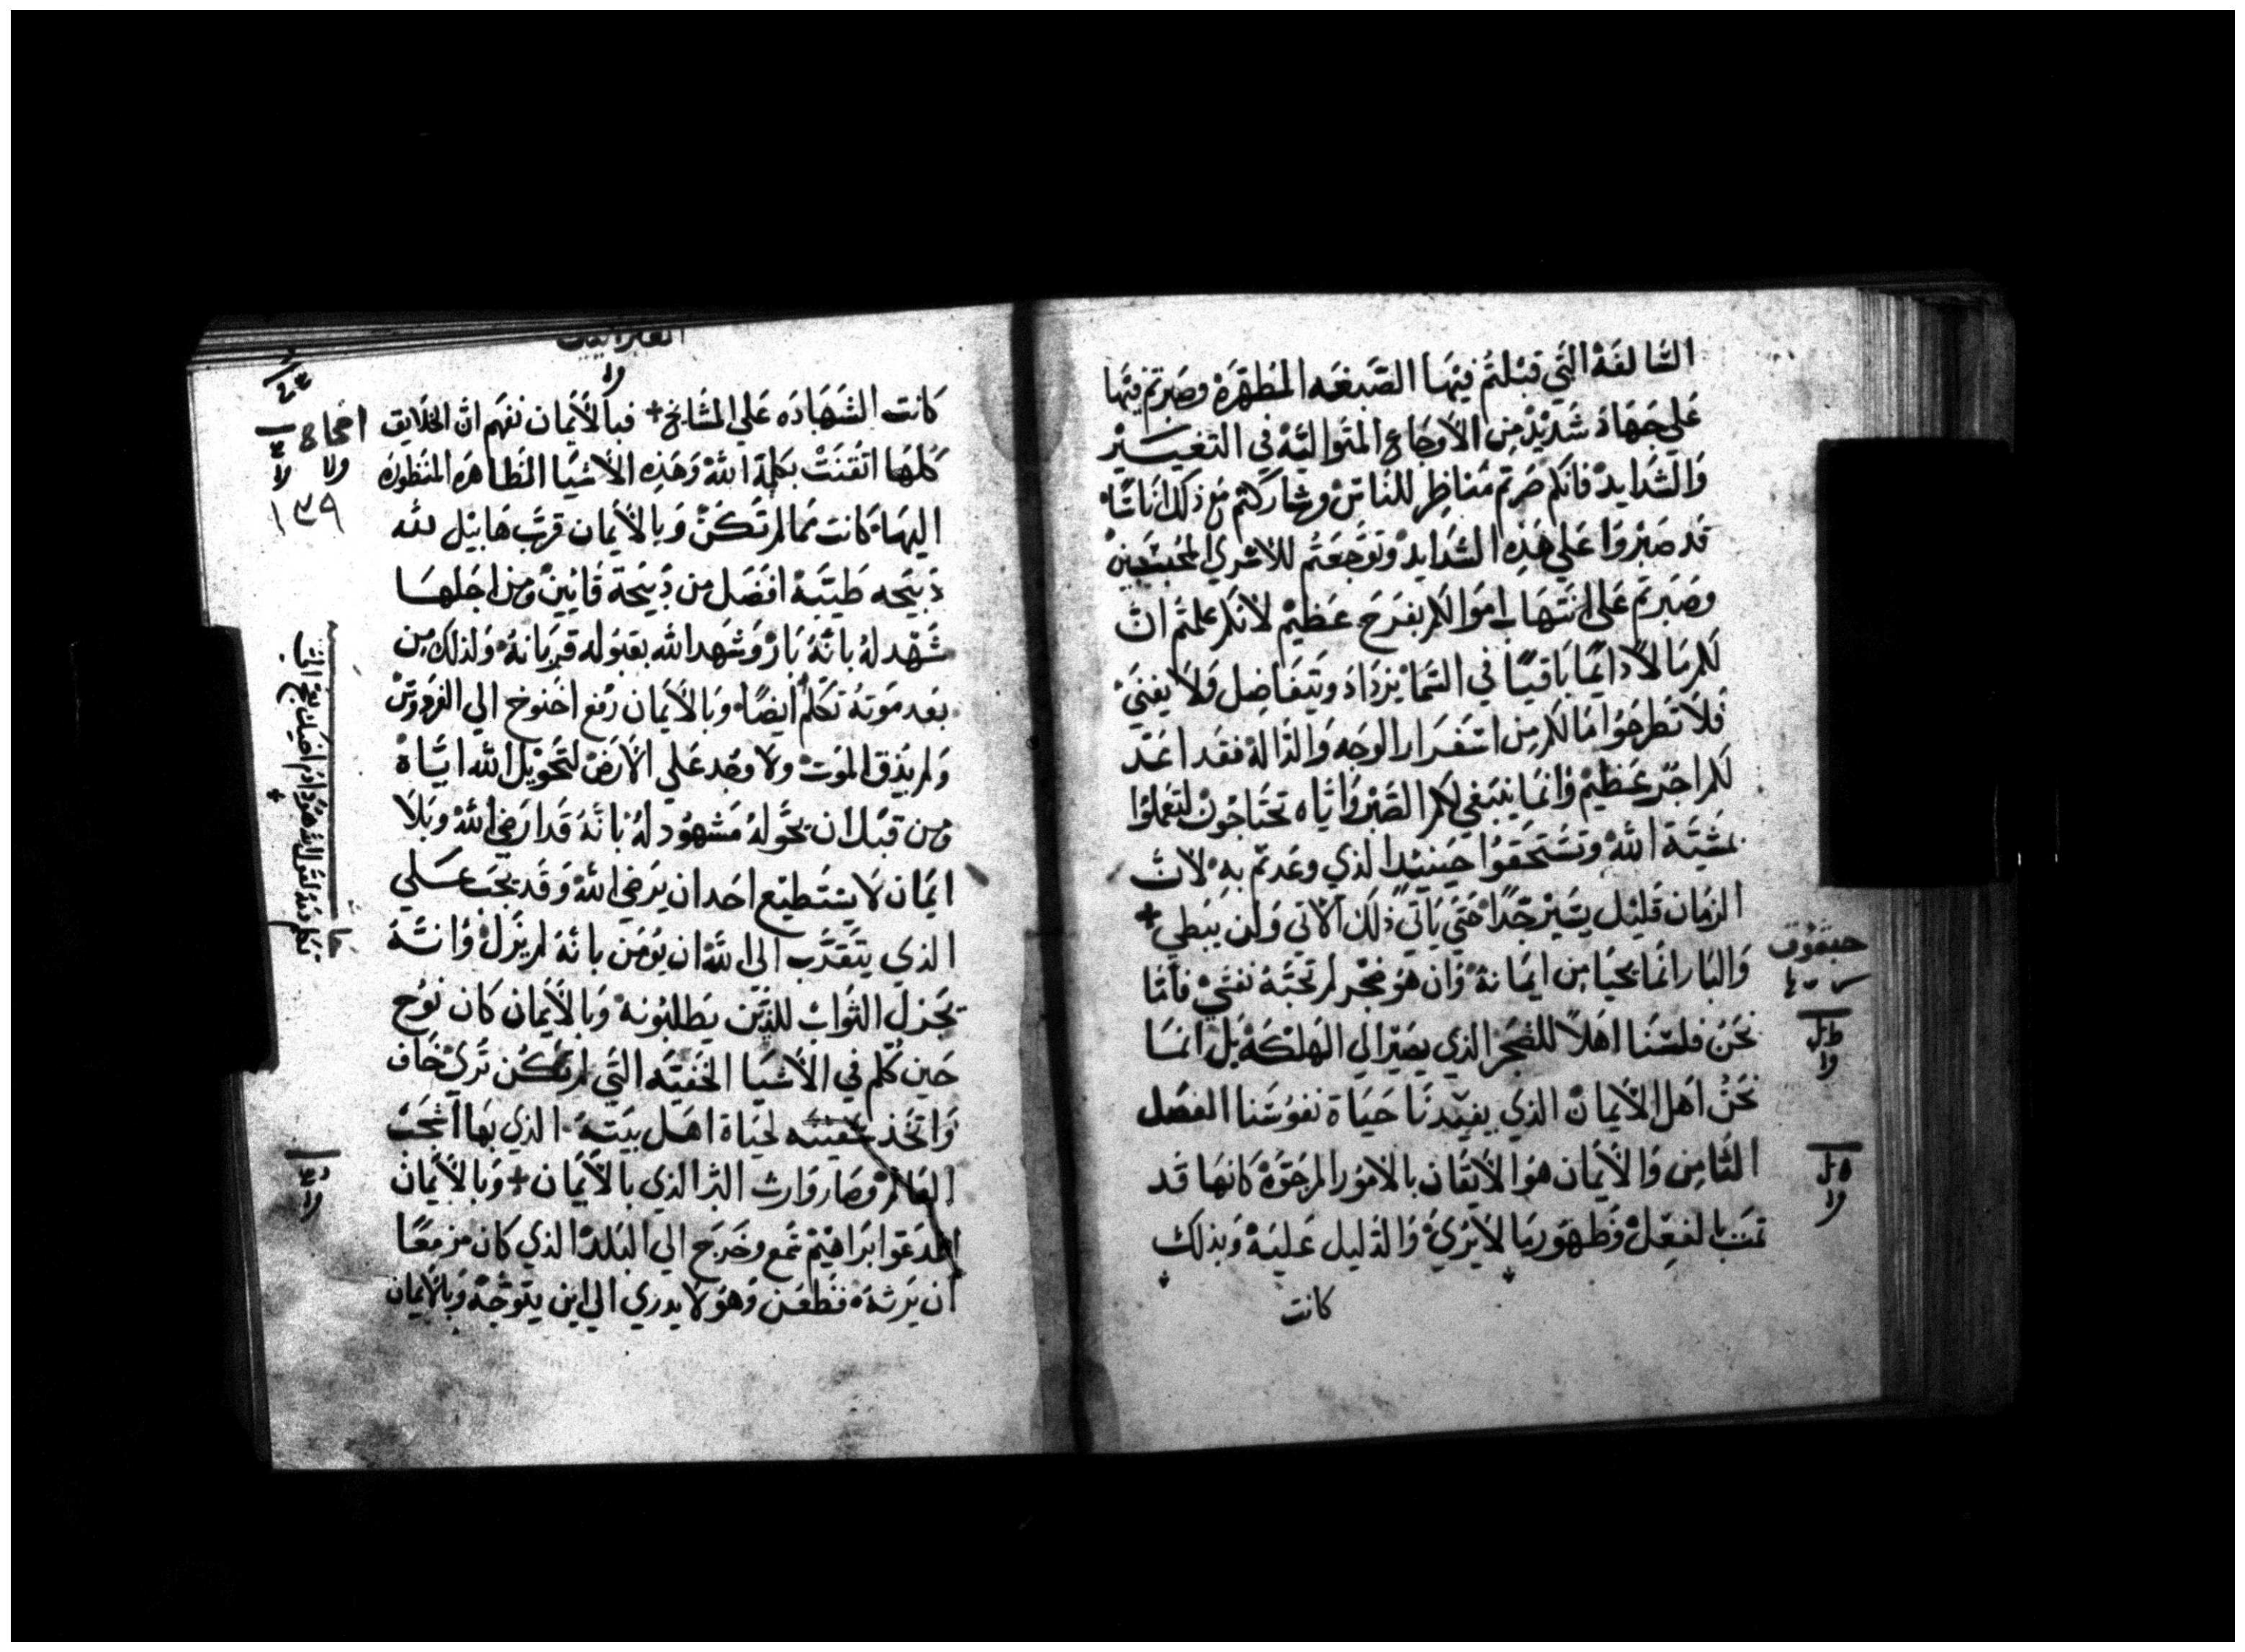 السَّالفَةْ التَي قبْلتمُ فيْهَا الصَّبغَه المُطهّرَةْ وصَبرتمْ فيْهَا
عَلي جهَادْ شَديْدْ مِن الأوجَاع المتَواليّةْ في التعْييَيْر
وَالشدَايدْ فانكم صَرتم مَناظِر للنَاسْ وشاركتمْ مع ذلك انَاسًا
قد صَبْروَا عَلي هَذه الشدَايدْ وتوَجعَتم للاسْري المحُبسَينْ
وصَبَرتم عَلي انتهَاب اموَالكم بفرَح عَظيْم لانكم علمتم ان
لكم مَالاً دَايمًا بَاقيًا في السَما يزدَادْ ويَتفَاضِل وَلاَ يفنيَ
فلاَ تطرحَوُا مَا لكم مِن اسَفرَار الوجَه وَالدَالةْ فقد اعَدّ
لكم اجْر عَظيمْ وَانمَا ينبَغي لكم الصَّبْر وَايَاه تحتَاجُونْ لتَعملوُا
بمَشيّةَ اللهْ وتسَتحَقوُا حيَنيْدا الذي وعَدتم بهِ لان
الزمَان قليْل يسَيْر جدًا حتَي يَاتيَ ذلك الاتي وَلن يبَطي+
وَالبَار انمَا يحيَا مِن ايمَانهْ وَان هو ضجْر لم تحبَهْ نفسَي فامَا
نحنُ فلسْنَا اهَلاً للضجَر الذي يصَيْر الي الهَلكَهْ بَل انمَا
نحَنُ اهَل الاَيمانْ الذي يفيْدنَا حيَاة نفوسَنا الفصَل
الثَامِن وَالايَمان هوَ الايَقان بالامُور المرجَوّةْ كانهَا قد
تمَت بالفعِلْ وَظهوَر مَا لايَريْ وَالدَليل عَليَهْ وَبذلك
كانت
حبقوق
العبرانيين
كانت الشهَادَه عَلي المشَايخ+ فبالاَيمان نفهَم ان الخلايق
كلهَا اتقنَتْ بكلمةَ اللهْ وَهَذهِ الاشيَا الظاهرَه المنَظورَه
اليهَا كانت ممَا لم تكَنْ وَبالاَيمان قرَّب هَابيْل لله
ذبيَحه طيّبَهْ افضَل من ذبيَحة قايينْ ومن اجَلهَا
شهَد لهُ بانّهُ بَارْ وَشهَد الله بقبوَله قربَانهُ وَلذلك من
بعَد مَوتهْ تكلم ايضًا وَبالاَيمان رفعَ اخنوخ الي الفردوسْ
وَلم يذق الموَتْ ولا وجُد عَلي الارَضْ لتحَويْل الله ايّاهْ
ومن قبْل ان يحَّولهُ مَشهوُد لهُ بانَهُ قد ارضَي اللهْ وبلاَ
ايمَان لا يسْتَطيْع احَد ان يرضَي اللهْ وَقد يجَب عَلي
الذي يتقدَّب الي اللهْ ان يوُمن بانهُ لم يزَلْ وَانهُ
يجَزل الثوَابْ للذّين يطلبُونهْ وَبالايَمان كان نوُح
حَين كلم في الاشيَا الخفيّه التَي لم تكُن ترَيْ خاف
وَاتخذ سَفينَه لحيَاة اهَل بيَتهْ الذي بهَا اشجَبْ
العَالمْ وصَار وَارث البَر الذي بالاَيمان+ وَبالاَيمان
المدعَوا برَاهيْم سمع وخرَج الي البَلدْ الذي كان مزمعًا
ان يرَثهُ فظعَن وَهو لا يدري الي اين يتوجَهْ وَبالاَيمان
١٣٩